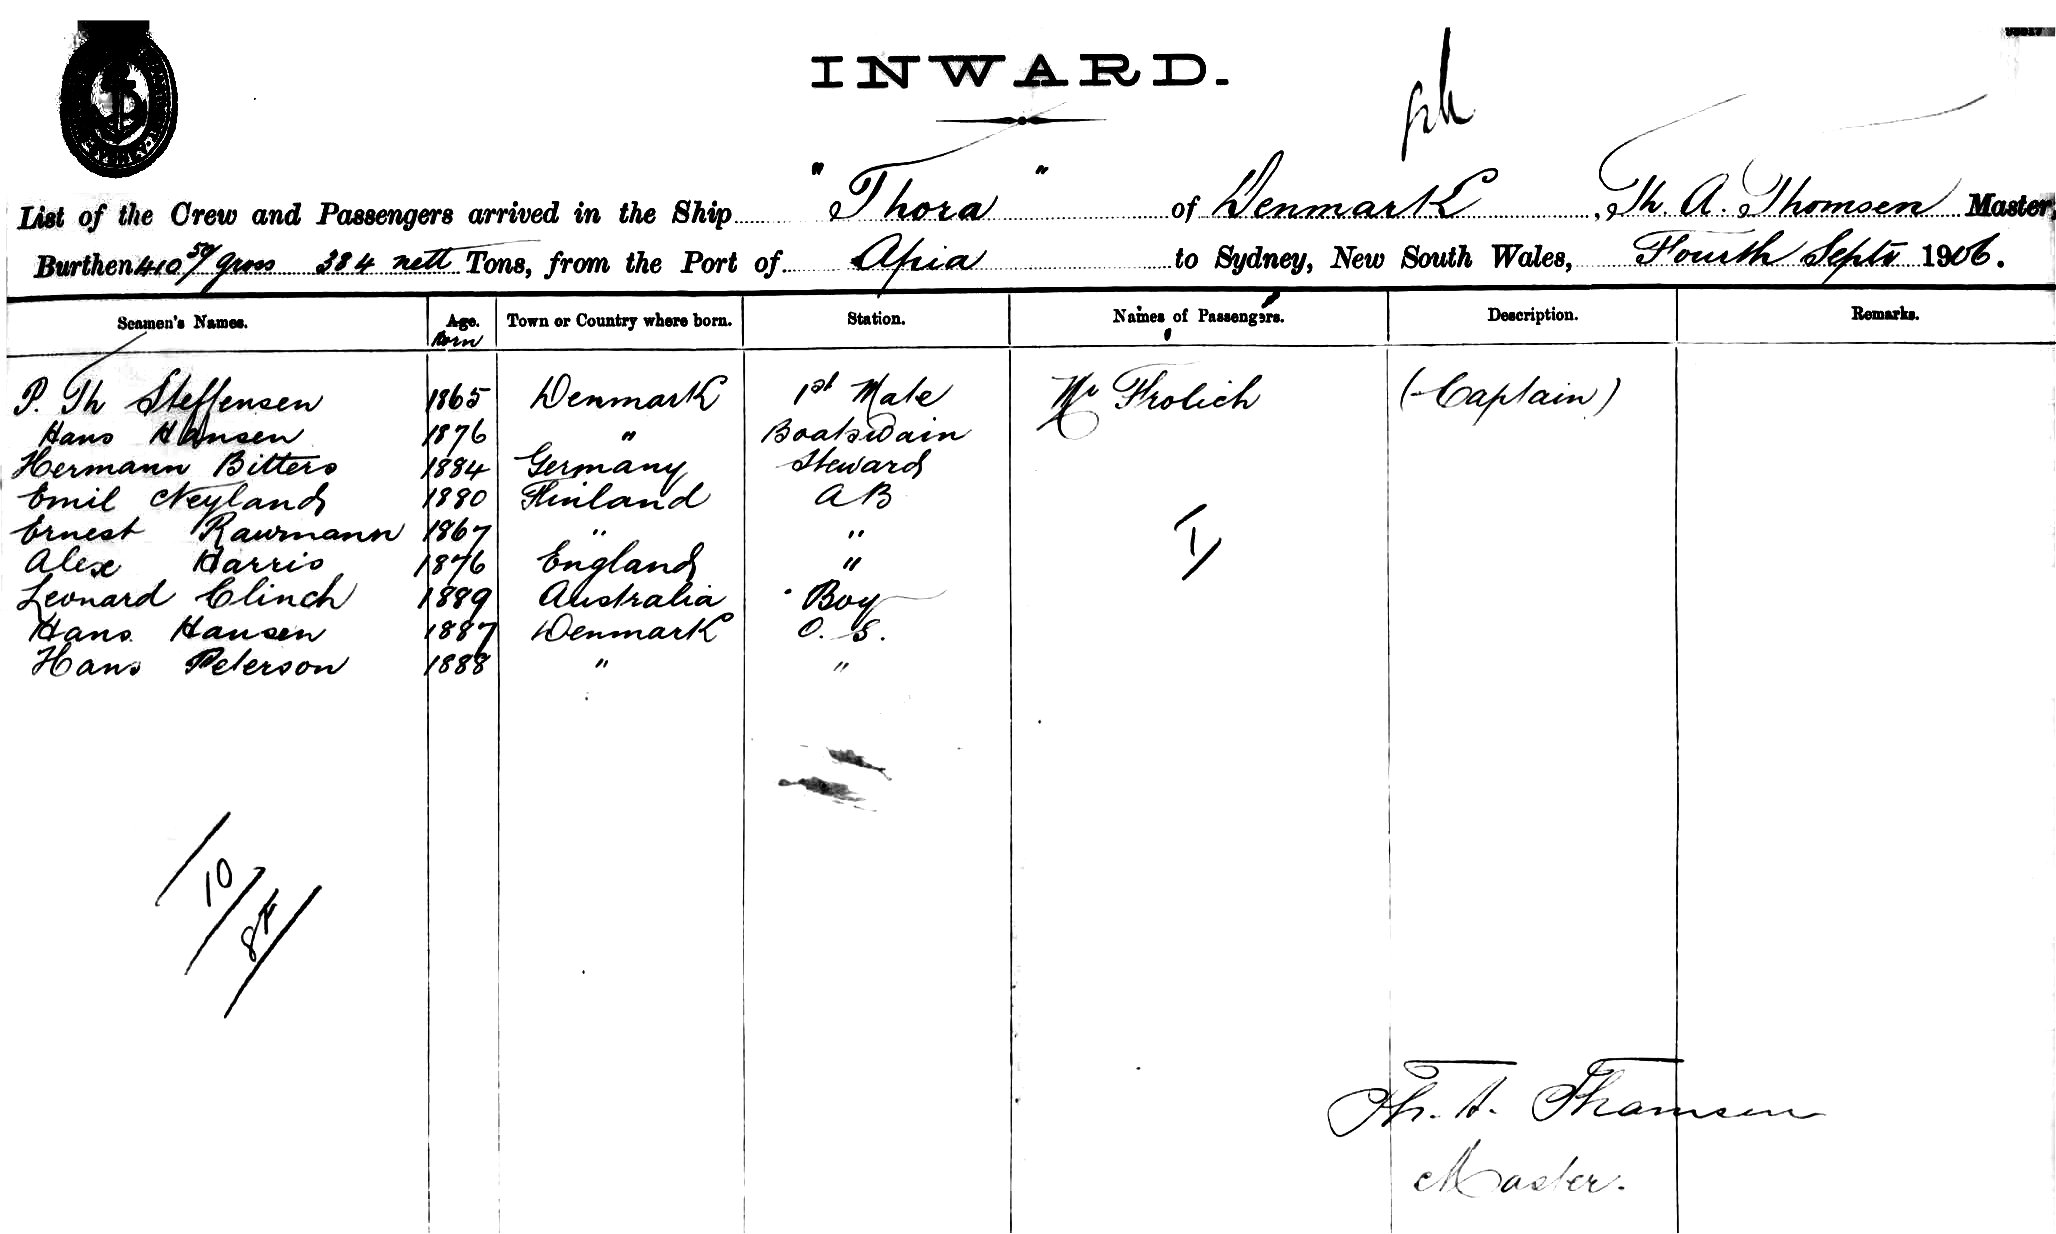 INWARD.
List of the Crew and Passengers arrived in the Ship "Thora" of Denmark, Th. A. Thomsen Master,
Burthen 410 50/ gross 384 nett Tons, from the Port of Apia to Sydney, New South Wales, Fourth Septr 1906.
Seamen's Names. Age. Born Town or Country where born. Station. Names of Passengers. Description. Remarks.
P. Th Steffensen 1865 Denmark 1st Mate Mr Frolich (Captain)
Hans Hansen 1876 " Boatswain
Hermann Bitters 1884 Germany Steward
Emil Neyland 1880 Finland A B
Ernest Raurmann 1867 " "
Alex Harris 1876 England "
Leonard Clinch 1889 Australia Boy
Hans Hansen 1887 Denmark O. S.
Hans Peterson 1888 " "
1/
10/
8F
Th. A. Thomsen
Master.